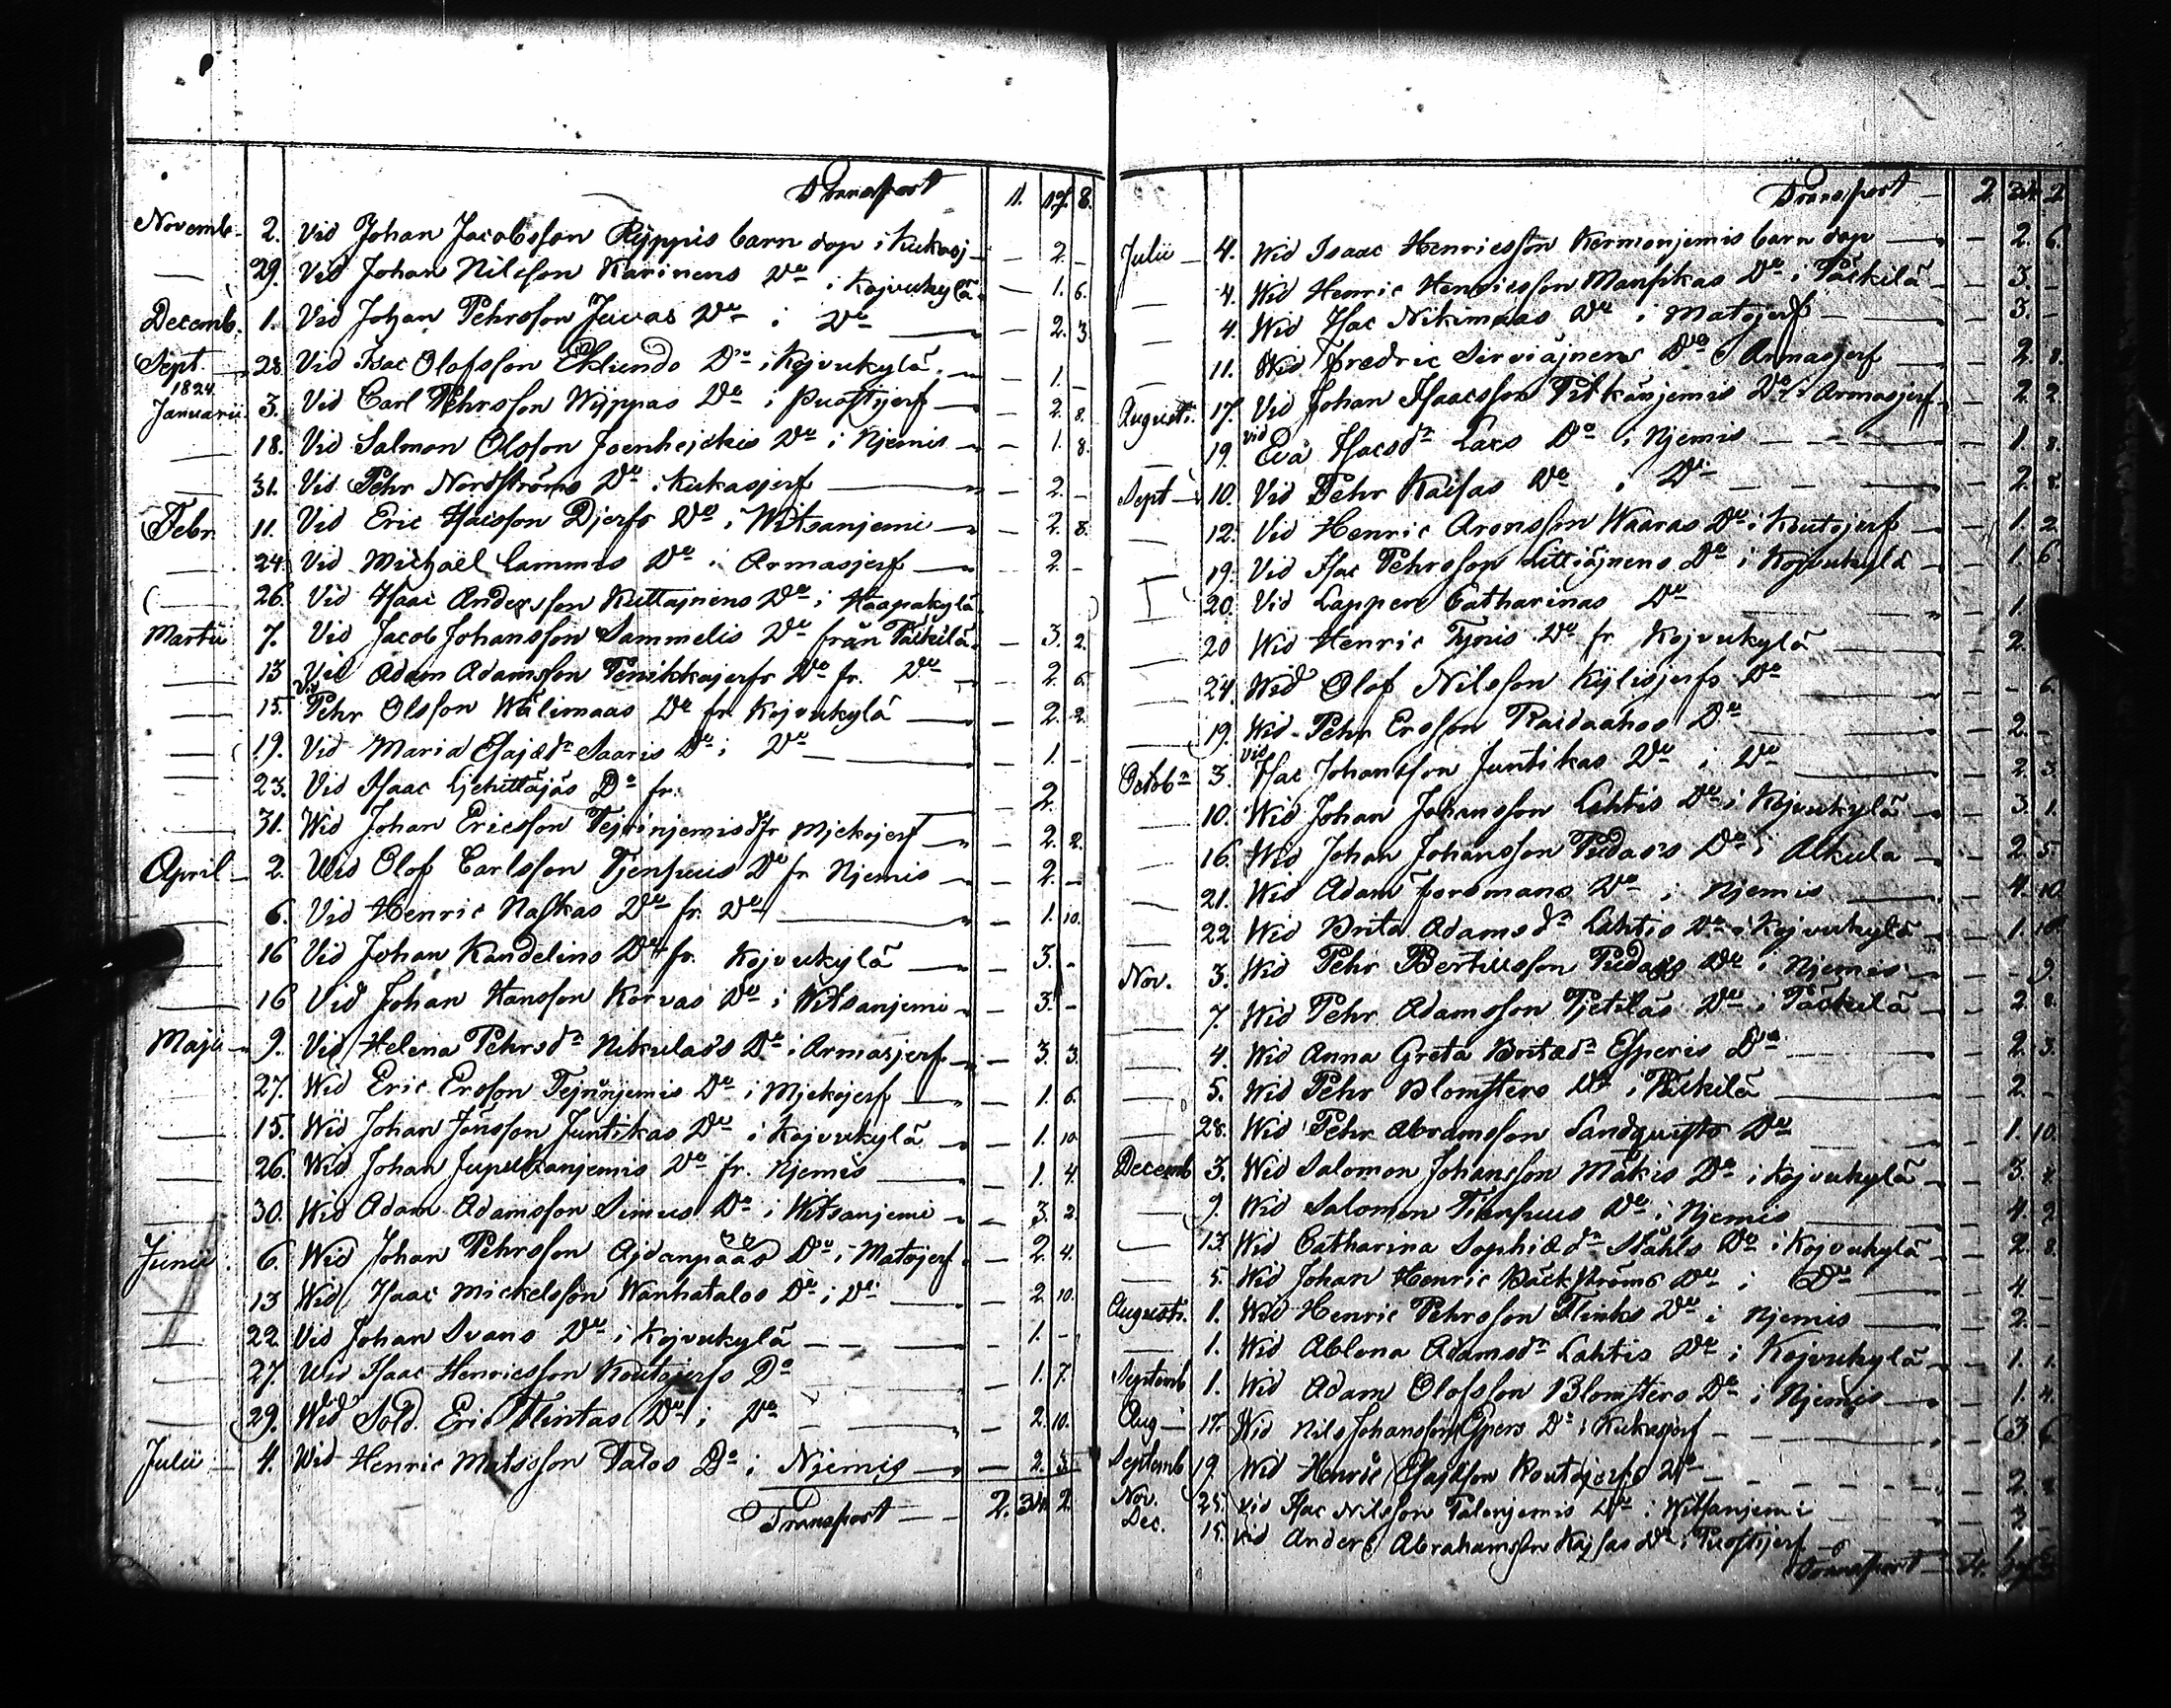 Transport 1. 17. 8.
Novemb. 2. Vid Johan Jacobsson Ryppis barn dop i Kukasj — 2. –
— 29. Vid Johan Nilsson Karinens Do i Kojvukylä — 1. 6.
Decemb. 1. Vid Johan Pehrsson Jeivas Do i Do — 2. 3
Sept. 28 Vid Isac Olofsson Eklunds Do i Kojvukylä — 1. –
1824.
Januarii 3. Vid Carl Pehrsson Wyppas Do i Puostijerf — 2. 8.
— 18. Vid Salmon Olsson Joenhejckis Do i Njemis — 1. 8.
— 31. Vid Pehr Nordströms Do i Kukasjerf — 2. –
Febr. 11. Vid Eric Isacsson Djerfs Do i Witsanjemi — 2. 8.
— 24. Vid Michaël Lammes Do i Armasjerf — 2. –
— 26. Vid Isaac Andersson Kuttajnens Do i Haapakylä
Martii 7. Vid Jacob Johansson Sammelis Do från Päckilä — 3. 2.
— 13 Vid Adam Adamsson Penikkajerfs Do fr. Do — 2. 6.
— 15. Vid Pehr Olsson Wälimaas Do fr. Kojvukylä — 2. 2.
— 19. Vid Maria Esajæ dr Saaris Do i Do — 1. –
— 23. Vid Isaac Do fr. 2.
— 31. Wid Johan Ericsson Tejrinjemis fr Mjekojerf — 2. 2.
April 2. Wid Olof Carlsson Tjensuus Do fr Njemis — 2. –
— 6. Vid Henric Naskas Do fr. Do — 1. 10.
— 16 Vid Johan Kandelins Do fr. Kojvukylä — 3. –
— 16 Vid Johan Hansson Korvas Do i Witsanjemi — 3. –
Maji 9. Vid Helena Pehrs dr Nikulas's Do i Armasjerf — 3. 3.
— 27. Wid Eric Ersson Tejrinjemis Do i Mjekojerf — 1. 6.
— 15. Wid Johan Jönsson Juntikas Do i Kojvukylä — 1. 10.
— 26. Wid Johan Do fr. Njemis — 1. 4.
— 30. Wid Adam Adamsson Simus Do i Witsanjemi — 3. 2.
Junii 6. Wid Johan Pehrsson Ajdanpääs Do i Matojerf — 2. 4.
— 13 Wid Isaac Mickelsson Wanhatalos Do i Do — 2. 10.
— 22 Vid Johan Svans Do i Kojvukylä — 1. –
— 27. Wid Isaac Henricsson Koutojerfs Do — 1. 7.
— 29. Wid Sold. Eric Flintas Do i Do — 2. 10.
Julii 4. Wid Henric Matsson Talos Do i Njemis — 2. 3
Transport — 2. 34. 2.
Transport — 2. 34. 2
Julii 4. Wid Isaac Henricsson Kermonjemis barn dop — 2. 6.
— 4. Wid Henric Henricsson Do i Päckilä — 3. –
— 4. Wid Isac Nikimaas Do i Matojerf — 3. –
— 11. Wid Fredric Sirviäjnens Do i Armasjerf — 2. 8.
Augusti. 17. Vid Johan Isaacsson Pitkänjemis Do i Armasjerf — 2. 2
— 19. vid Eva Isacs dr Lars Do i Njemis — 1. 8.
Sept 10. Vid Pehr Kaisas Do i Do — 2. 8.
— 12. Vid Henric Aronsson Waaras Do i Koutojerf — 1. 2
— 19. Vid Isac Pehrsson Do i Kojvukylä — 1. 6.
— 20. Vid Lappen Catharinas Do — 1.
— 20 Wid Henric Do fr. Kojvukylä — 2.
— 24. Wid Olof Nilsson Kylisjerfs Do — – 6.
— 19. Wid Pehr Ersson Raidaahos Do — 2. –
Octobr 3. vid Isac Johansson Juntikas Do i Do — 2. 3.
— 10. Wid Johan Johansson Lahtis Do i Kojvukylä — 3. 1.
— 16. Wid Johan Johansson Pudas's Do i Alkula — 2. 5.
— 21. Wid Adam Forsmans Do i Njemis — 4. 10.
— 22 Wid Brita Adams dr Lahtis Do i Kojvukylä — 1. 10.
Nov. 3. Wid Pehr Bertilsson Pudas's Do i Njemis — – 9.
— 7. Wid Pehr Adamsson Pjetiläs Do i Päckilä — 2. 8.
— 4. Wid Anna Greta Britæ dr Esperis Do — 2. 3.
— 5. Wid Pehr Blomsters Do i Päckilä — 2. –
— 28. Wid Pehr Abramsson Sandquists Do — 1. 10.
Decemb 3. Wid Salomon Johansson Mäkis Do i Kojvukylä — 3. 4.
— 9. Wid Salomon Tiensuus Do i Njemis — 4. 2
— 13. Wid Catharina Sophiæ dr Ståhls Do i Kojvukylä — 2. 8.
— 5. Wid Johan Henric Bäckströms Do i Do — 4. –
Augusti. 1. Wid Henric Pehrsson Flinks Do i Njemis — 2. –
— 1. Wid Ablona Adams dr Lahtis Do i Kojvukylä — 1. 1.
Septemb 1. Wid Adam Olofsson Blomsters Do i Njemis — 1. 4.
Aug 17. Wid Nils Johansson Espers Do i Kukasjerf — 3 6.
Septemb 19. Wid Henric Esajasson Koutojerfs Do — 2.
Nov. 25. vid Isac Nilsson Palonjemis Do i Witsanjemi — 2. –
Dec. 15. vid Anders Abrahamsson Kajsas Do i Puostijerf
Transport — 4.